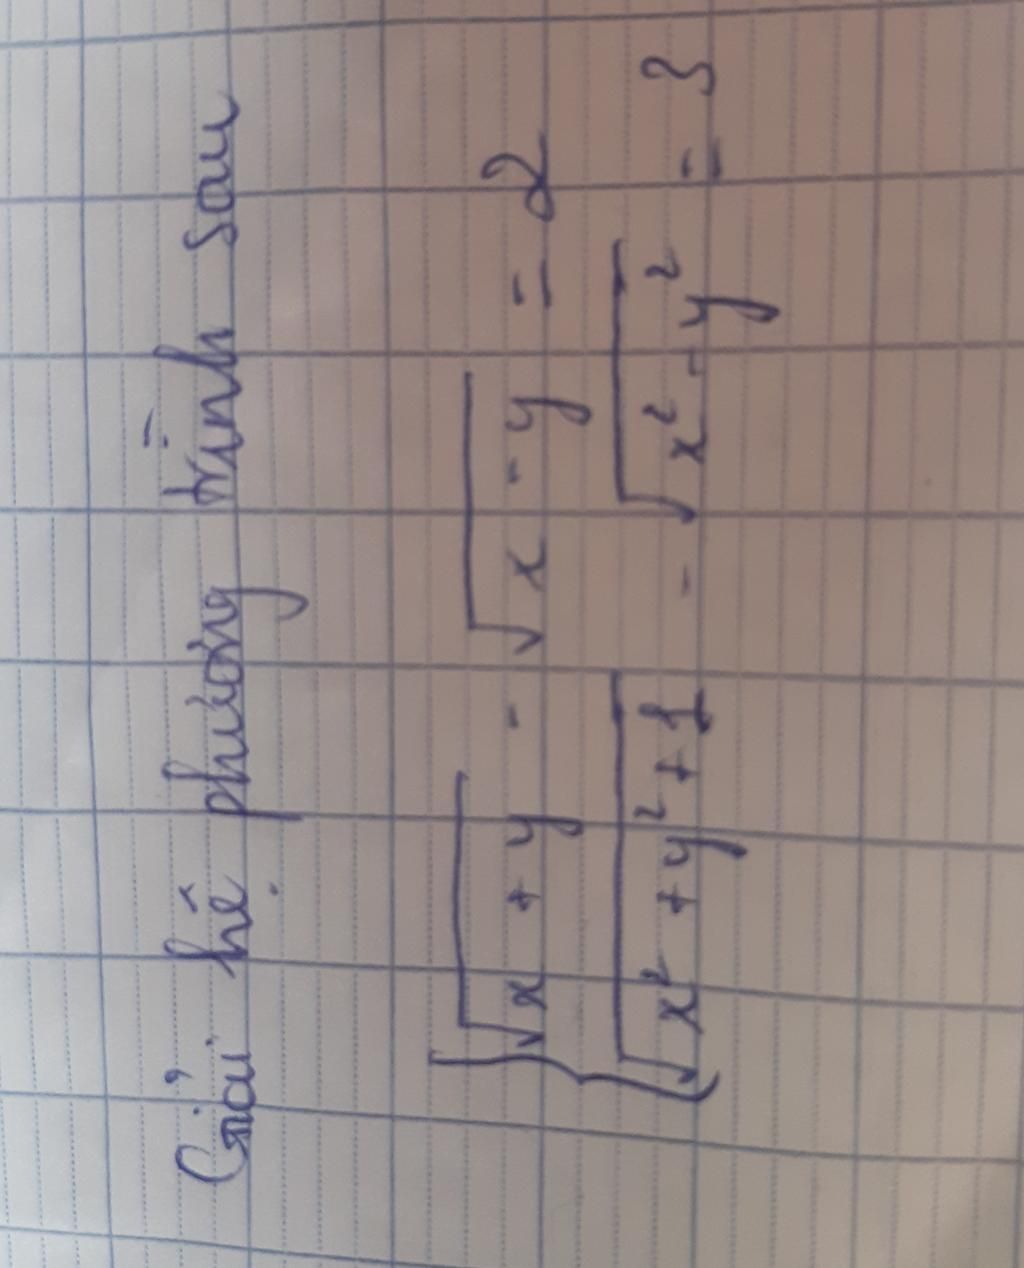 Giải hệ phương trình sau
{ √(x + y) - √(x - y) = 2
√(x² + y² + 1) - √(x² - y²) = 3